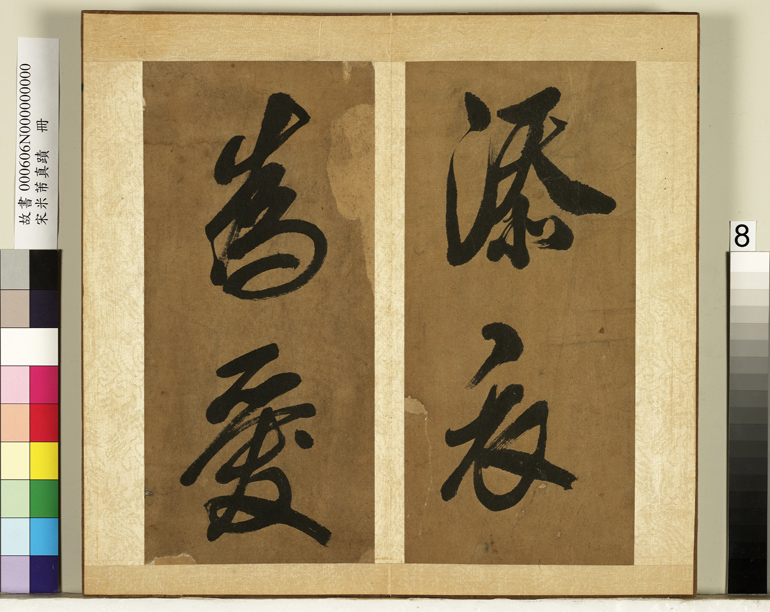 添衣
為愛
故書 000606N000000000
宋米芾真蹟 冊
8